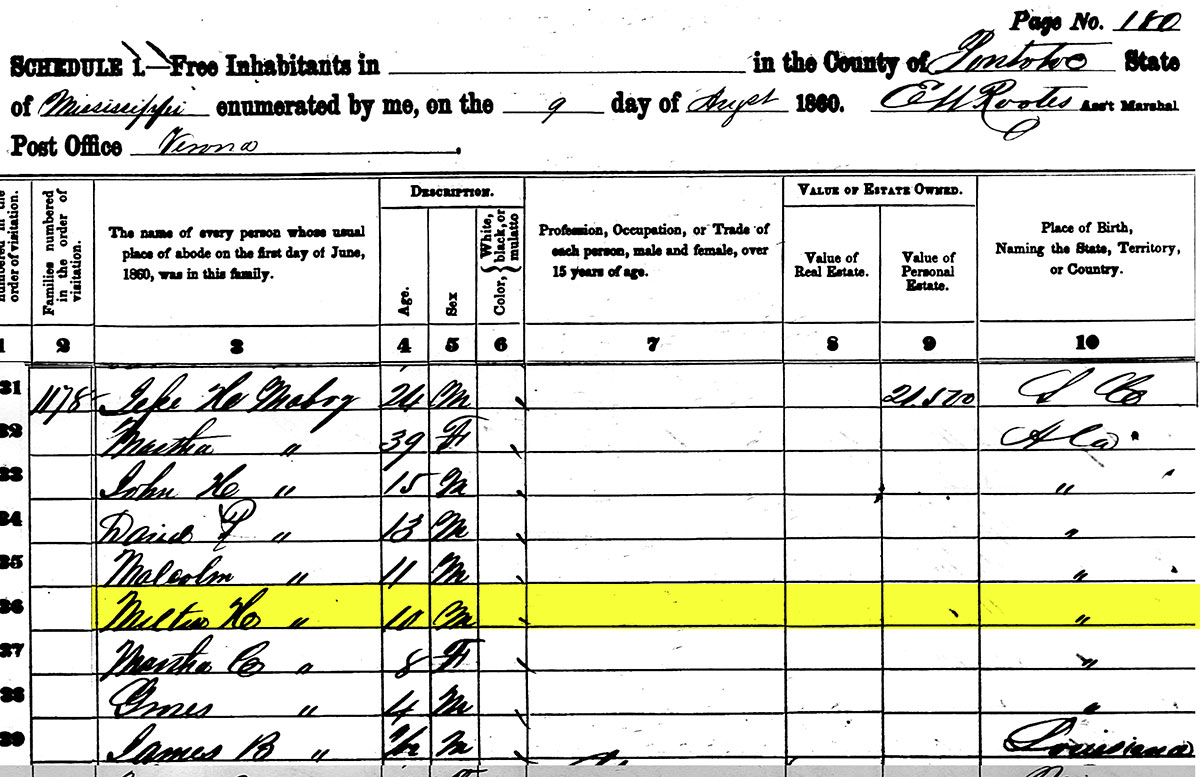 Page No. 180
SCHEDULE 1.—Free Inhabitants in in the County of Pontotoc State
of Mississippi enumerated by me, on the 9 day of Augst 1860. E W Rootes Ass't Marshal.
Post Office Verona.
numbered in the order of visitation.
Families numbered in the order of visitation.
The name of every person whose usual
place of abode on the first day of June,
1860, was in this family.
DESCRIPTION.
Age.
Sex
Color, { White, black, or mulatto
Profession, Occupation, or Trade of
each person, male and female, over
15 years of age.
VALUE OF ESTATE OWNED.
Value of
Real Estate.
Value of
Personal
Estate.
Place of Birth,
Naming the State, Territory,
or Country.
1 2 3 4 5 6 7 8 9 10
31 1178 H Mabry M 21,500 S C
32 Martha " 39 F Ala
33 John H " 15 M "
34 David P " 13 M "
35 Malcolm " 11 M "
36 Milton H " 10 M "
37 Martha C " 8 F "
38 " 4 M "
39 James B " M Louisiana